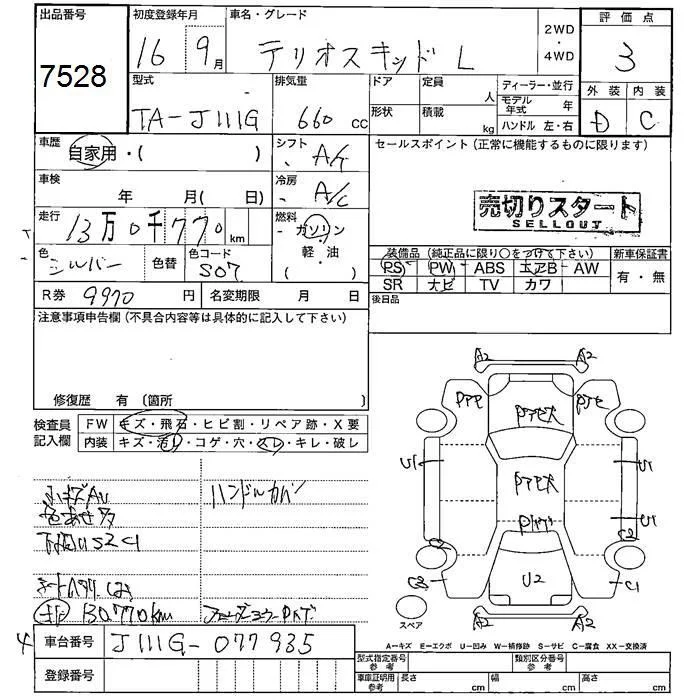 出品番号
7528
初度登録年月
16 9月
車名・グレード
テリオスキッド L
2WD
・
4WD
評価点
3
型式
TA-J111G
排気量
660 CC
ドア
定員
人
形状
積載
kg
ディーラー・並行
モデル年式 年
ハンドル 左・右
外装
内装
D
C
車歴
自家用・( )
シフト
A/T
セールスポイント (正常に機能するものに限ります)
車検
年 月( 日)
冷房
A/C
売切りスタート
SELLOUT
走行
13万0千770km
燃料
ガソリン
軽・油
( )
色
シルバー
色替
色コード
S07
装備品 (純正品に限り○をつけて下さい)
新車保証書
PS PW ABS エアB AW
有・無
SR ナビ TV カワ
R券 9970円
名変期限 月 日
後日品
注意事項申告欄 (不具合内容等は具体的に記入して下さい)
修復歴 有 (箇所
検査員記入欄
FW キズ・飛石・ヒビ割・リペア跡・X要
内装 キズ・汚レ・コゲ・穴・スレ・キレ・破レ
小キズAU
ハンドルカバー
色あせ
130,770km
A2 A2
U1
U1
U1
C2
U2
C2
C1
A2 A2
スペア
車台番号
J111G-077935
登録番号
A=キズ E=エクボ U=凹み W=補修跡 S=サビ C=腐食 XX=交換済
型式指定番号 参考
類別区分番号 参考
車庫証明用 参考
長さ cm
幅 cm
高さ cm